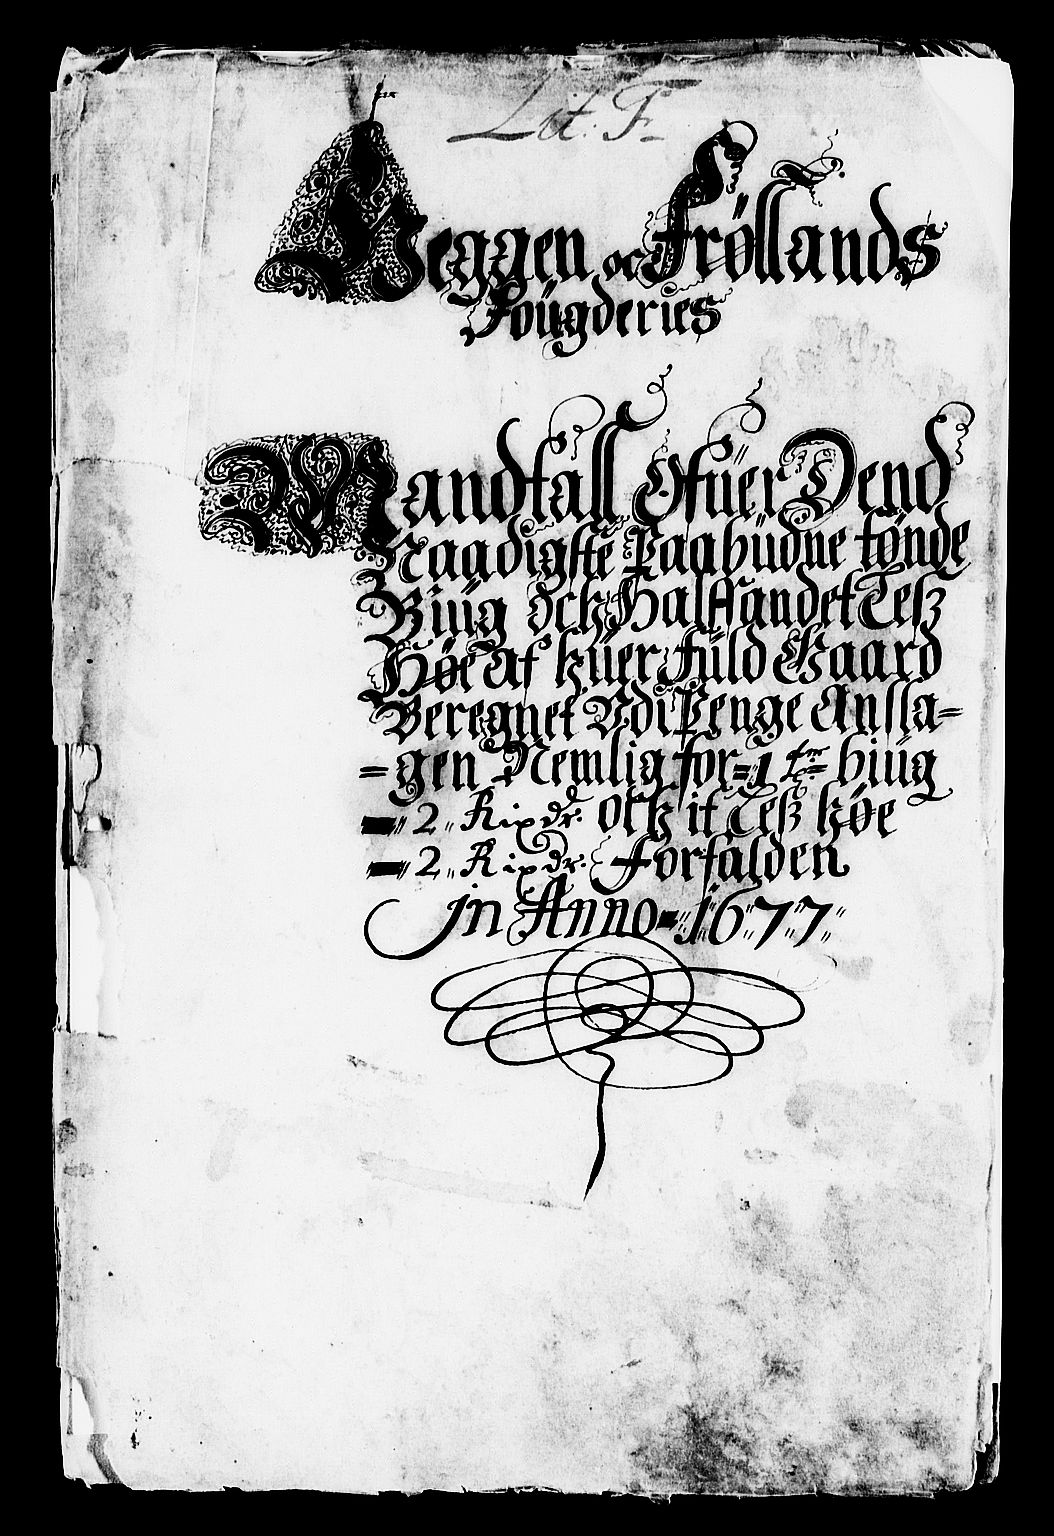 Lit: F:
Heggen oc Frøllands
Foügderies
Mandtall Ofüer Dend
Naadigste Paabüdne tønde
Biüg Ock Halfandet Lesz
Høe af hüer füld Gaard
Beregnet Udi Penge Ansla=
=gen Nemlig for=1 tø= biüg
2 Rixdr. ock it Lesz høe
2 Rixdr. forfalden
in Anno 1677